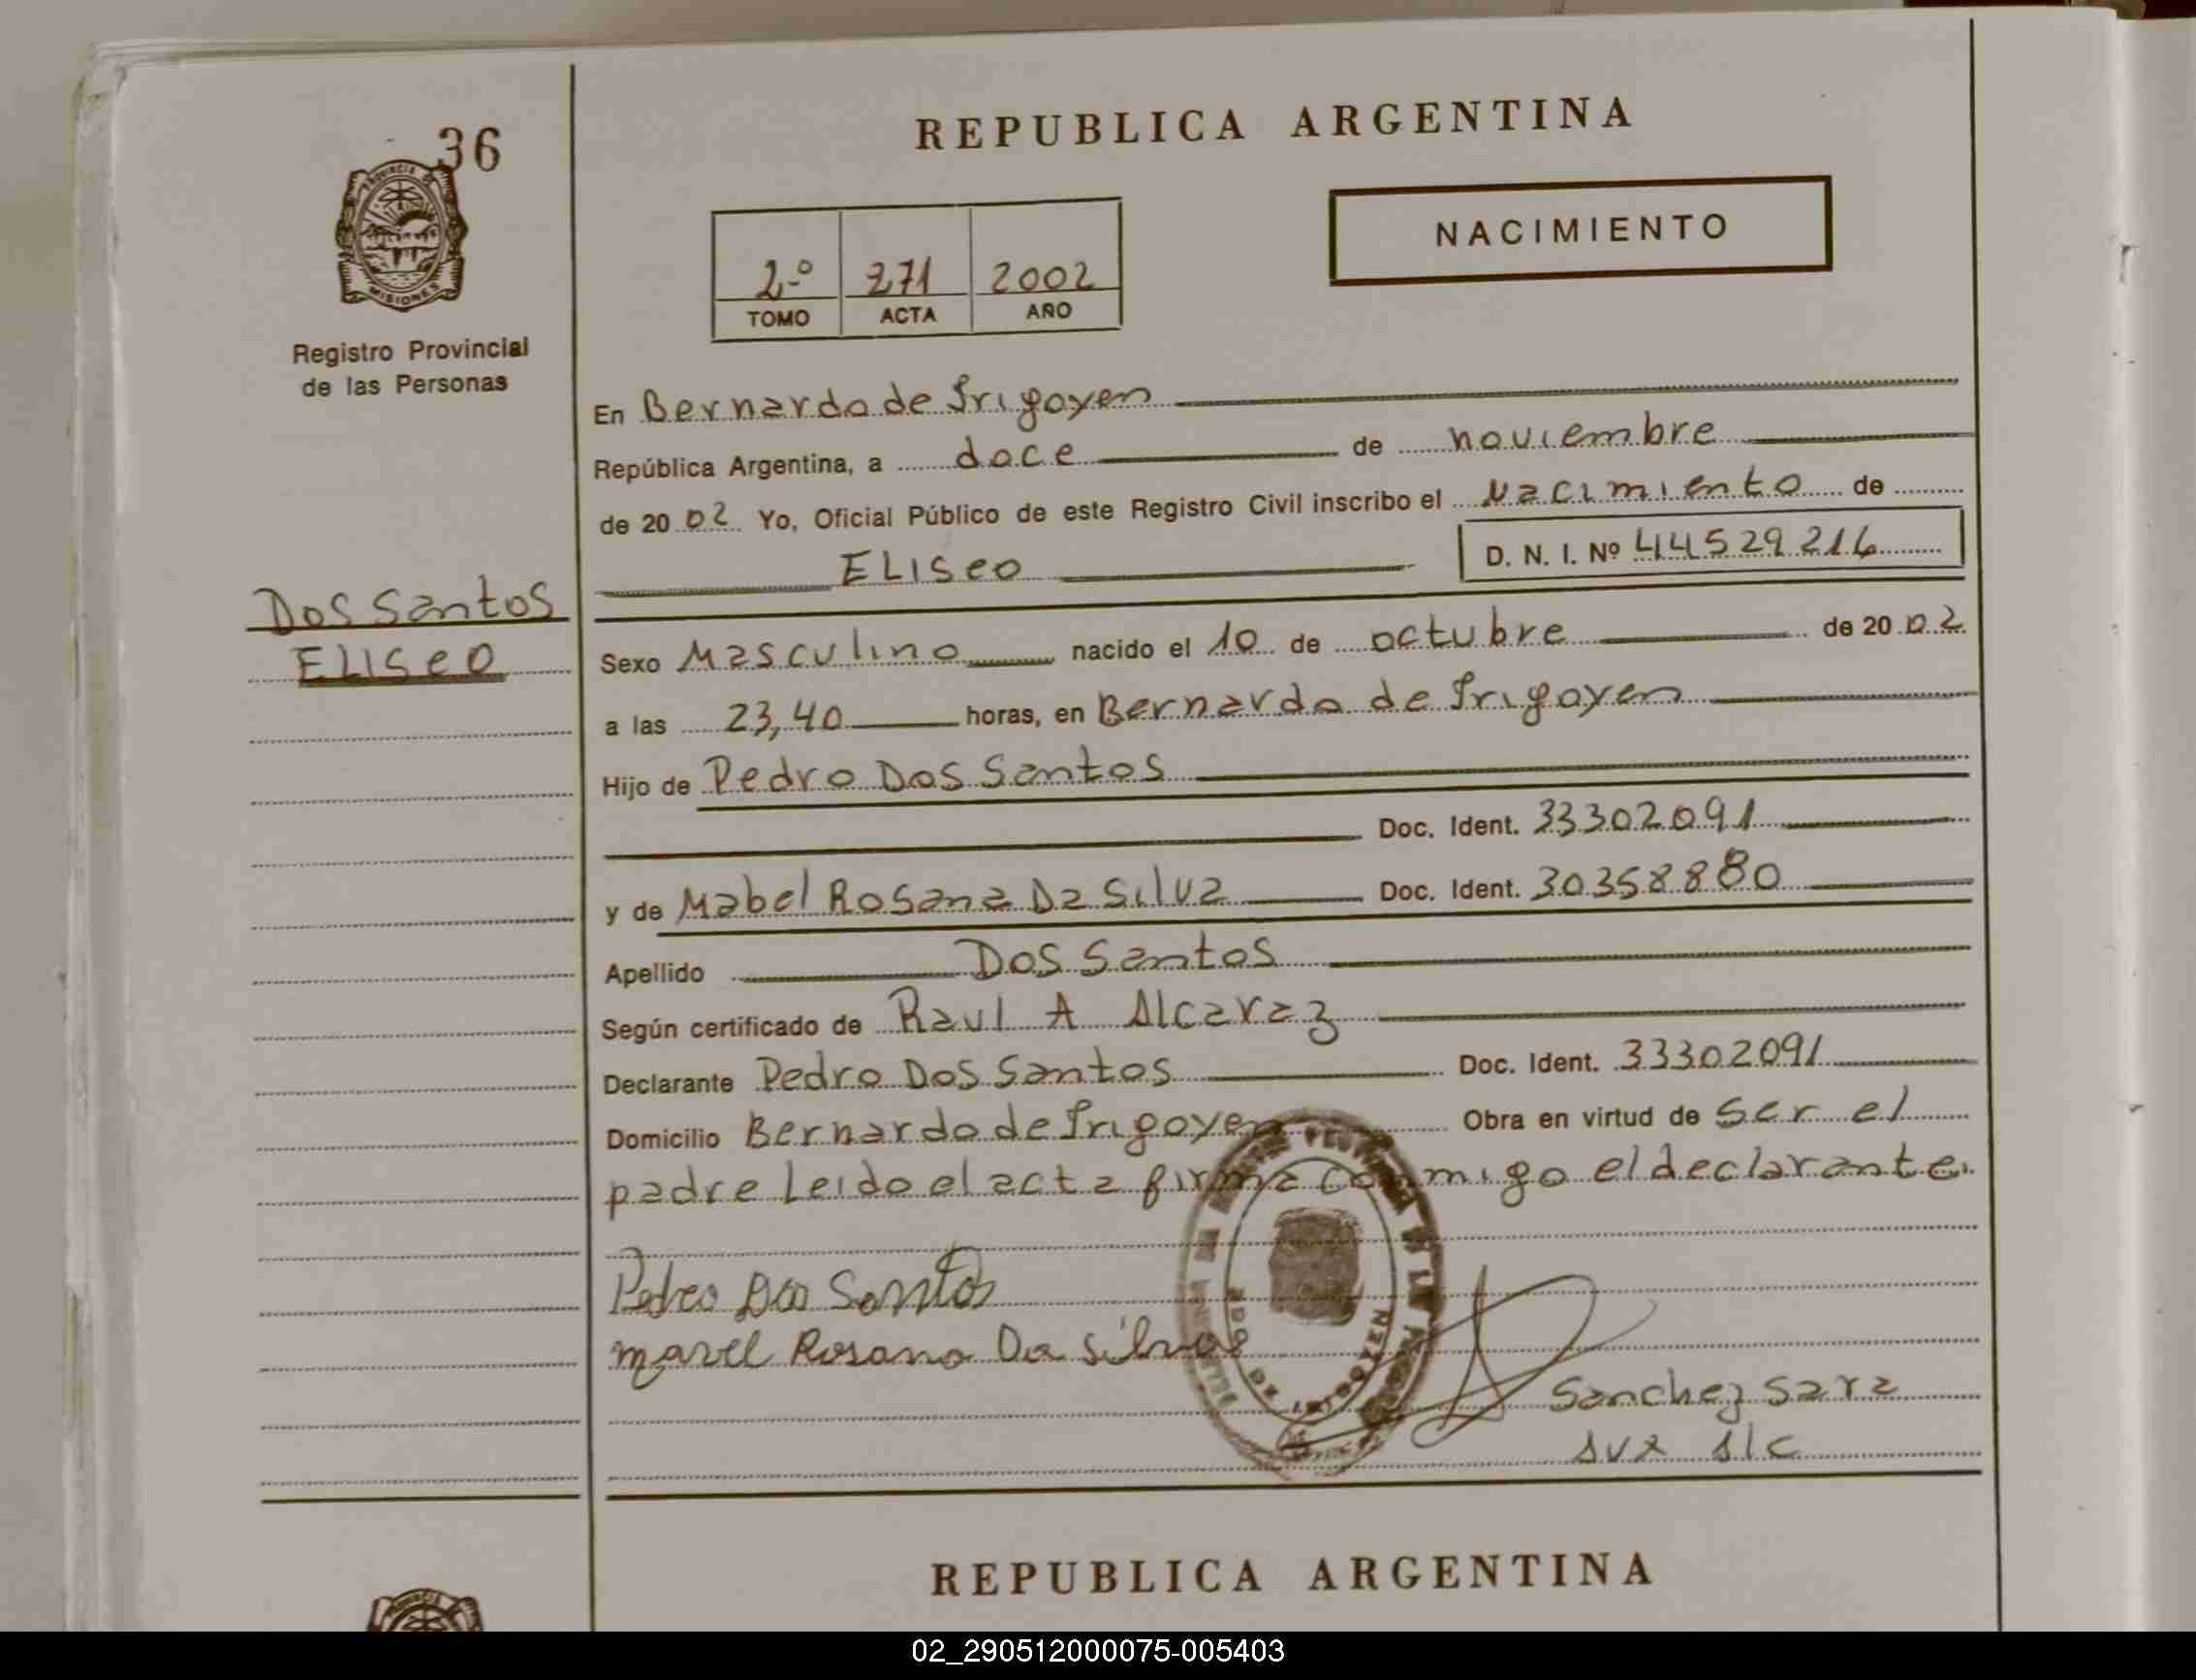 36
PROVINCIA DE
MISIONES
Registro Provincial
de las Personas
Dos Santos
ELISEO
REPUBLICA ARGENTINA
NACIMIENTO
2º 271 2002
TOMO ACTA AÑO
En Bernardo de Irigoyen
República Argentina, a doce de noviembre
de 2002 Yo, Oficial Público de este Registro Civil inscribo el Nacimiento de
ELISEO D. N. I. Nº 44529216
Sexo Masculino nacido el 10 de octubre de 2002
a las 23,40 horas, en Bernardo de Irigoyen
Hijo de Pedro Dos Santos
Doc. Ident. 33302091
y de Mabel Rosana Da Silva Doc. Ident. 30358880
Apellido Dos Santos
Según certificado de Raul A Alcaraz
Declarante Pedro Dos Santos Doc. Ident. 33302091
Domicilio Bernardo de Irigoyen Obra en virtud de ser el
padre Leido el acta firma conmigo el declarante.
Pedro Dos Santos
Mavel Rosana Da Silva
Sanchez Sara
REPUBLICA ARGENTINA
02_290512000075-005403